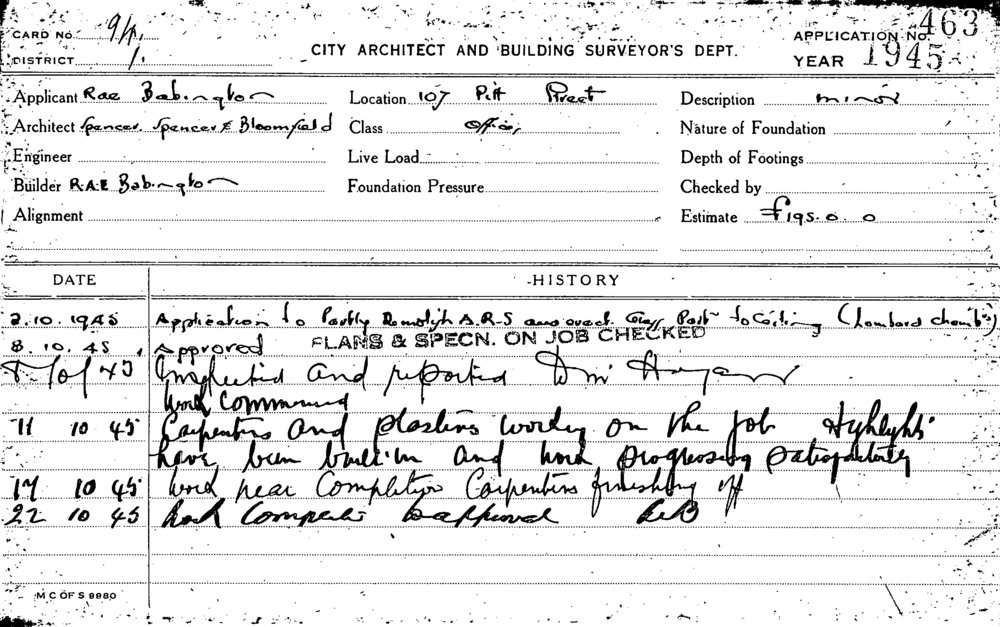 CARD No. 9A. APPLICATION No. 463
DISTRICT 1. CITY ARCHITECT AND BUILDING SURVEYOR'S DEPT. YEAR 1945
Applicant Rae Babington Location 107 Pitt Street Description minor
Architect Spencer, Spencer & Bloomfield Class Office, Nature of Foundation
Engineer Live Load Depth of Footings
Builder R.A.E Babington Foundation Pressure Checked by
Alignment Estimate £195.0.0
DATE HISTORY
2.10.1945 Application to Partly Demolish A.R.S and erect Glass Partn to Ceiling (Lombard chamb's)
8.10.45, Approved PLANS & SPECN. ON JOB CHECKED
8/10/45 Inspected and reported to Mr
Work Commenced
11 10 45 Carpenters and plasters working on the job Hyhlyhts
have been built in and work progressing satisfactorily
17 10 45 Work near Completion Carpenters finishing off
22 10 45 Work Complete &approval
M C OF S 9980